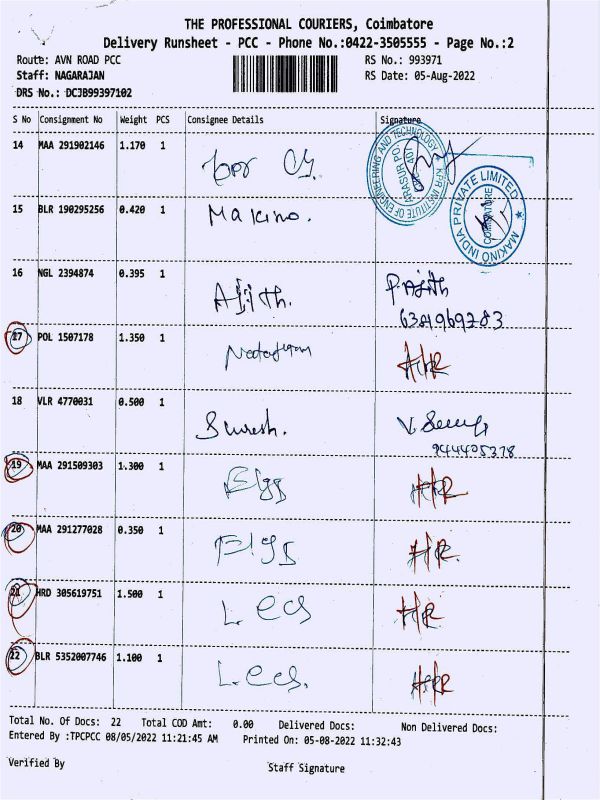 THE PROFESSIONAL COURIERS, Coimbatore
Delivery Runsheet - PCC - Phone No.:0422-3505555 - Page No.:2
Route: AVN ROAD PCC RS No.: 993971
Staff: NAGARAJAN RS Date: 05-Aug-2022
DRS No.: DCJB99397102
S No Consignment No Weight PCS Consignee Details Signature
14 MAA 291902146 1.170 1
KPR INSTITUTE OF ENGINEERING AND TECHNOLOGY
ARASUR PO
15 BLR 190295256 0.420 1 Makino.
MAKINO INDIA PRIVATE LIMITED
COIMBATORE
16 NGL 2394874 0.395 1 Ajith. P. Ajith
6381969283
17 POL 1507178 1.350 1
18 VLR 4770031 0.500 1 Suresh.
944405378
19 MAA 291509303 1.300 1 Elgs
20 MAA 291277028 0.350 1 Elgs
21 HRD 305619751 1.500 1 Lecs
22 BLR 5352007746 1.100 1 L.ecs.
Total No. Of Docs: 22 Total COD Amt: 0.00 Delivered Docs: Non Delivered Docs:
Entered By :TPCPCC 08/05/2022 11:21:45 AM Printed On: 05-08-2022 11:32:43
Verified By Staff Signature